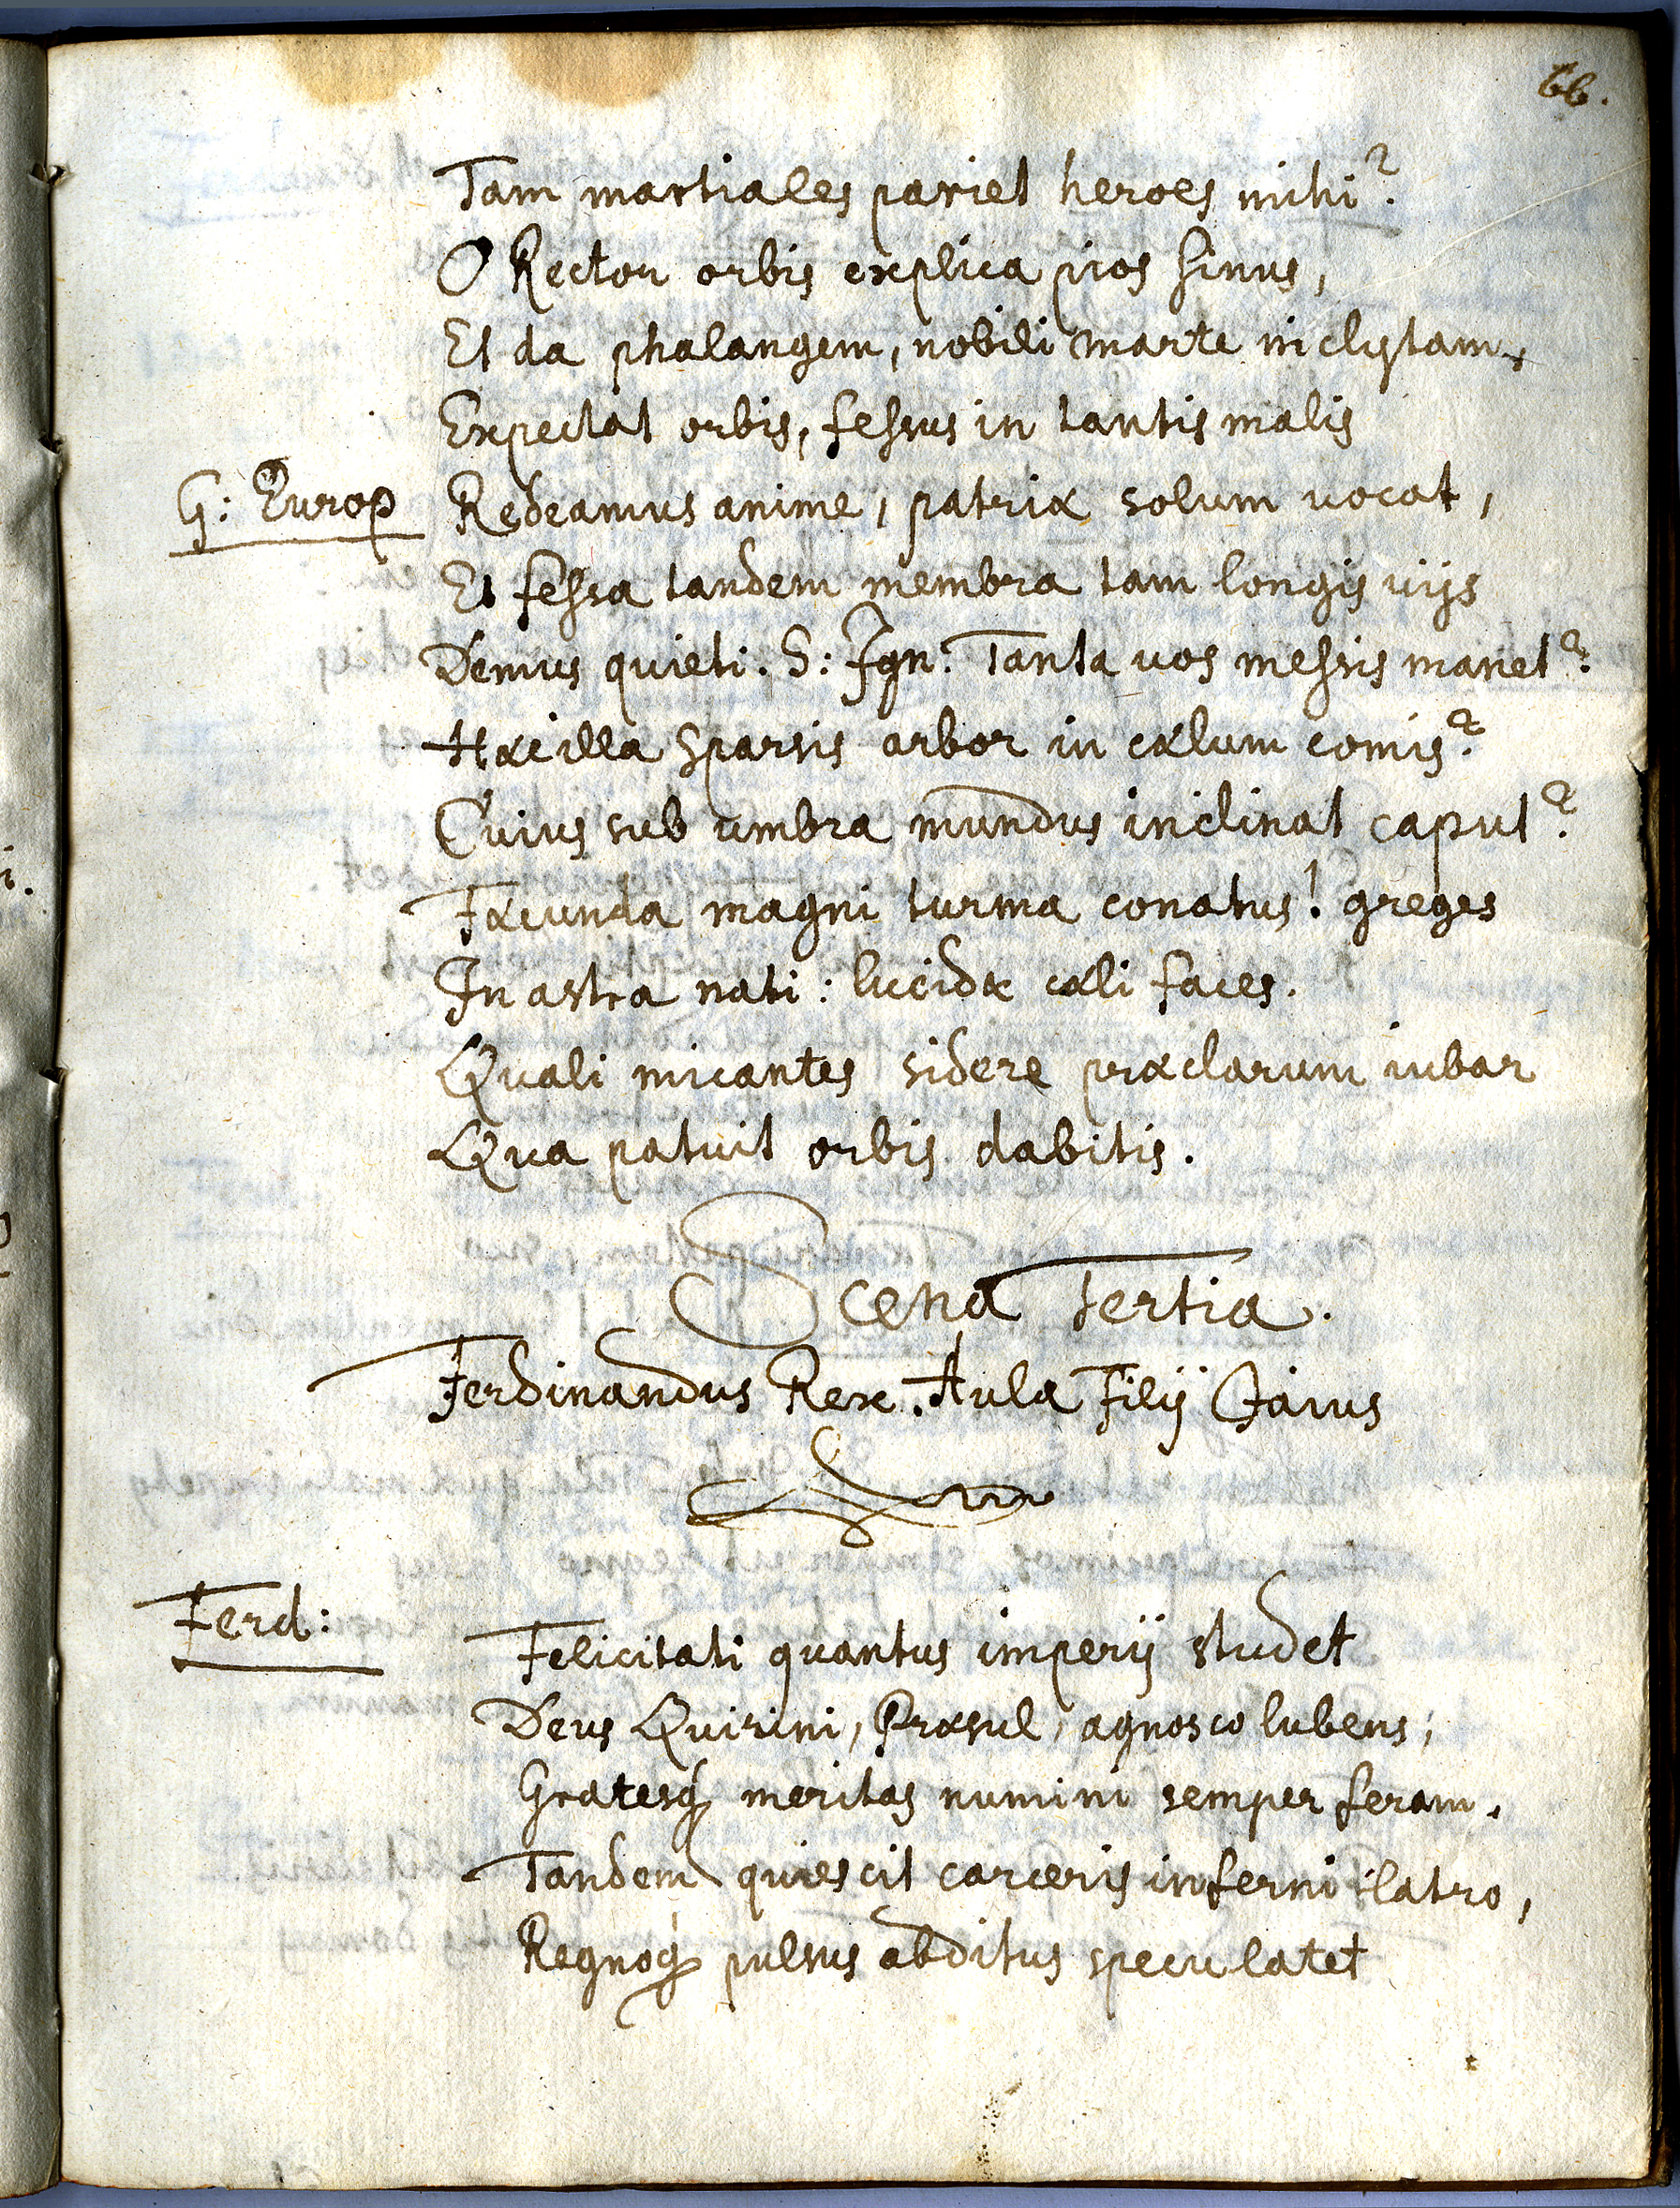 66.
Tam martiales pariet heroes mihi?
O Rector orbis explica pios sinus,
Et da phalangem, nobili marte inclytam,
Expectat orbis, fessus in tantis malis
G: Europ Redeamus anime, patriæ solum vocat,
Et fessa tandem membra tam longis viis
Demus quieti. S: Ign: Tanta vos messis manet?
Hæc illa sparsis arbor in cælum comis?
Cuius sub umbra mundus inclinat caput?
Fæcunda magni turma conatus! greges
In astra nati: lucidæ cæli faces.
Quali micantes sidere præclarum iubar
Qua patuit orbis dabitis.
Scena tertia.
Ferdinandus Rex. Aula Filij
Ferd: Felicitati quantus imperij studet
Deus Quirini, Præsul, agnosco lubens,
Gratesq meritas numini semper feram.
Tandem quiescit carceris inferni latro,
Regnoq pulsus abditus specu latet